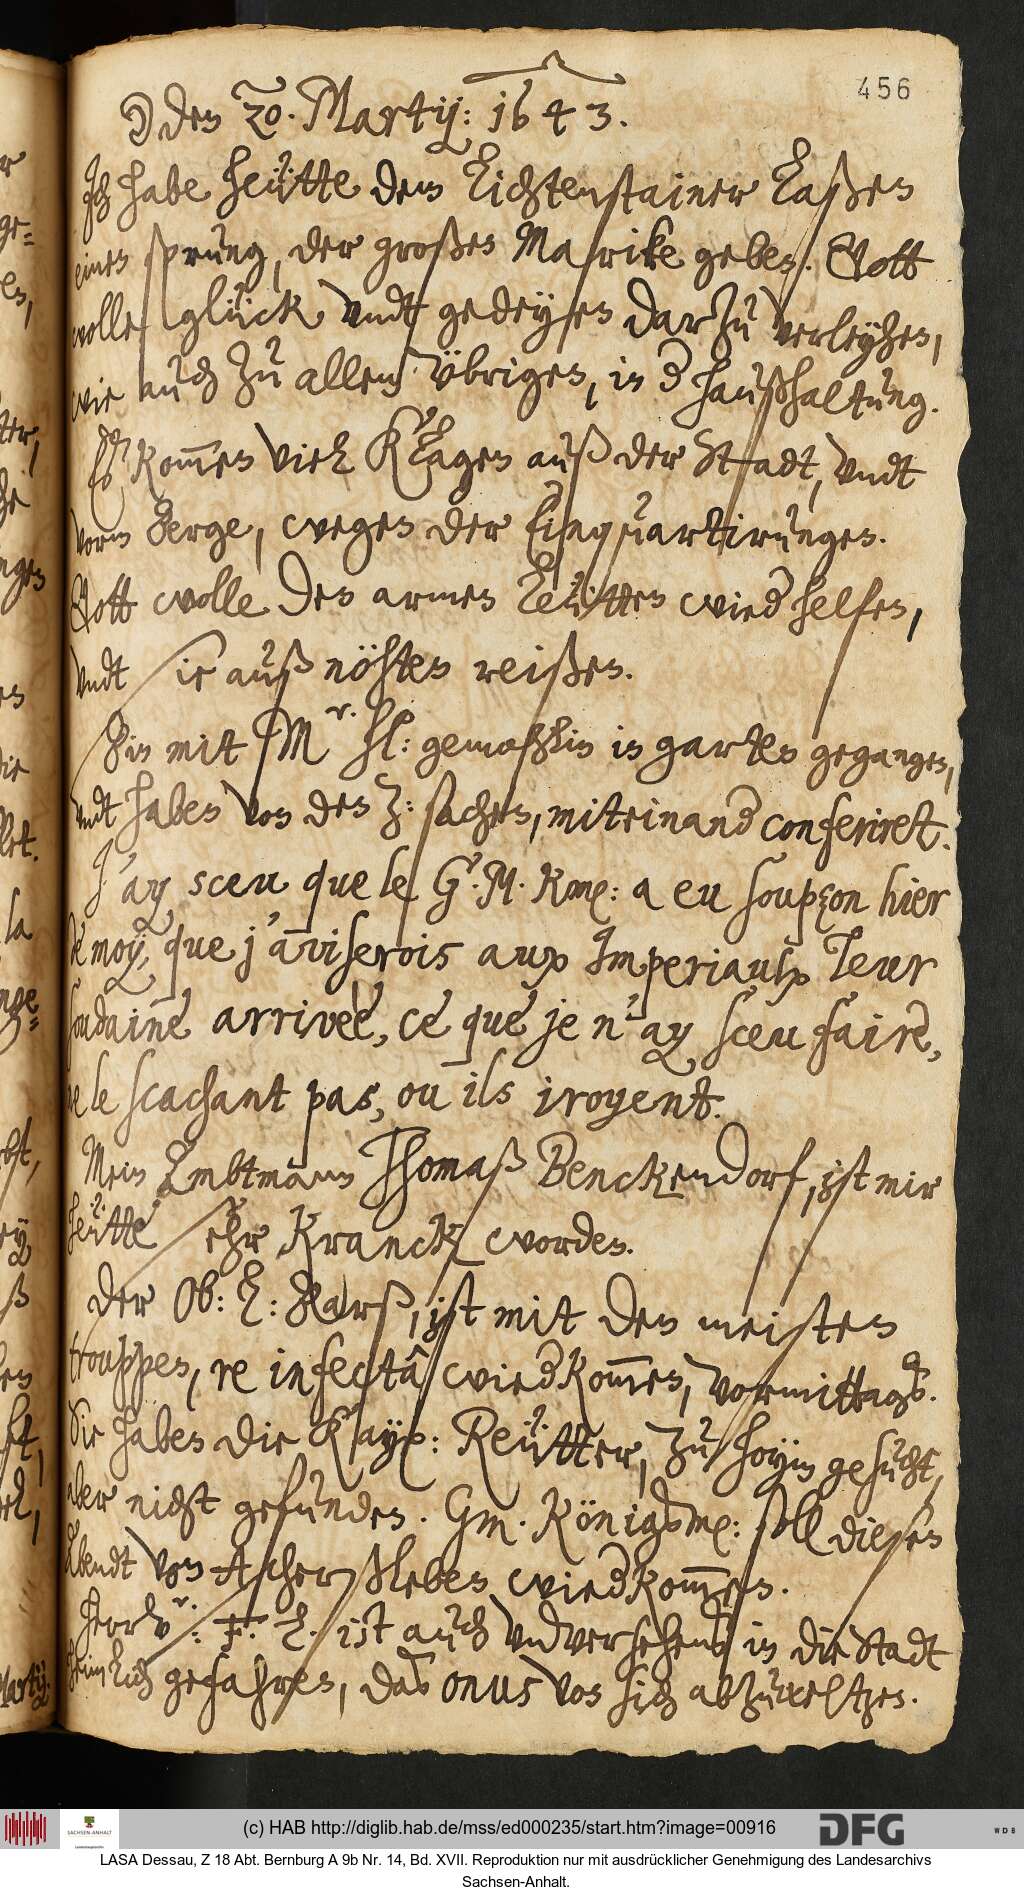 456
☽ den 20. Martij: 1643.
Ich habe heütte dem Lichtenstainer laßen
einen sprung, der großen Marike geben. Gott
wolle glück vndt gedeyen darzu verleyhen,
wie auch zu allem v̈brigen, in d haußhaltung.
Es kom̅en viel Klagen auß der Stadt, vndt
vorm berge, wegen der Einquartirungen.
Gott wolle den armen leütten wied helfen,
vndt sie auß nöhten reißen.
Bin mit Mr. hl: gemahlin in garten gegangen,
vndt haben von den Z: sachen, miteinand conferiret.
J'ay sceu que le G. M. Kme: a eu soupçon hier
de moy, que j'aviserois aux Imperiaulx leur
soudaine arriveè, ce que je n'ay sceu faire,
ne le scachant pas, ou ils iroyent.
Mein Ambtmann Thomaß Benckendorf, ist mir
heütte sehr kranck worden.
Der Ob: L: Barß, ist mit den meisten
trouppen, re infectâ wiedkom̅en, vormittags.
Sie haben die Kayß: Reütter, zu Hoym gesucht,
aber nicht gefunden. Gm. Königsme: soll diesen
Abendt von Ascherßleben wiedkom̅en.
herr v. F. L. ist auch vnversehens in die Stadt
heimlich gefahren, das onus von sich abzuweltzen.
(c) HAB http://diglib.hab.de/mss/ed000235/start.htm?image=00916
SACHSEN-ANHALT
DFG
WDB
LASA Dessau, Z 18 Abt. Bernburg A 9b Nr. 14, Bd. XVII. Reproduktion nur mit ausdrücklicher Genehmigung des Landesarchivs
Sachsen-Anhalt.